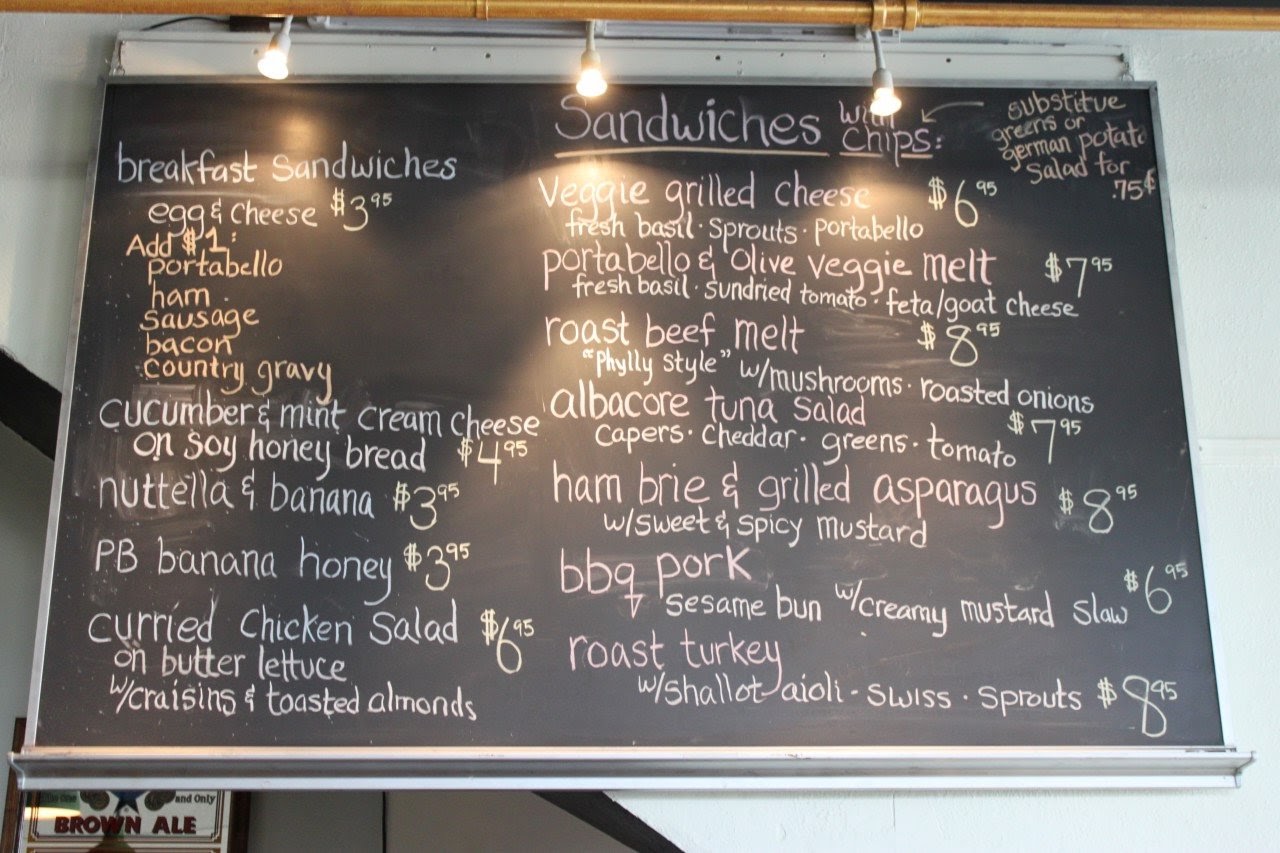 breakfast Sandwiches
egg & cheese $3.95
Add $1:
portabello
ham
sausage
bacon
country gravy
cucumber & mint cream cheese
on soy honey bread $4.95
nuttella & banana $3.95
PB banana honey $3.95
curried chicken salad $6.95
on butter lettuce
w/craisins & toasted almonds
Sandwiches with chips:
substitue
greens or
german potato
salad for
.75¢
veggie grilled cheese $6.95
fresh basil · sprouts · portabello
portabello & olive veggie melt $7.95
fresh basil · sundried tomato · feta/goat cheese
roast beef melt $8.95
"phylly style" w/mushrooms · roasted onions
albacore tuna salad $7.95
capers · cheddar · greens · tomato
ham brie & grilled asparagus $8.95
w/sweet & spicy mustard
bbq pork $6.95
sesame bun w/creamy mustard slaw
roast turkey
w/shallot aioli - swiss · sprouts $8.95
and Only
BROWN ALE